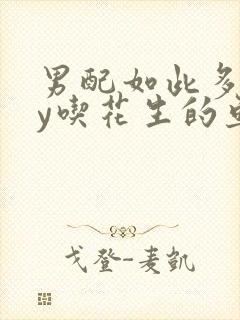 男配如此多
y喫花生的
戈登-麦凱